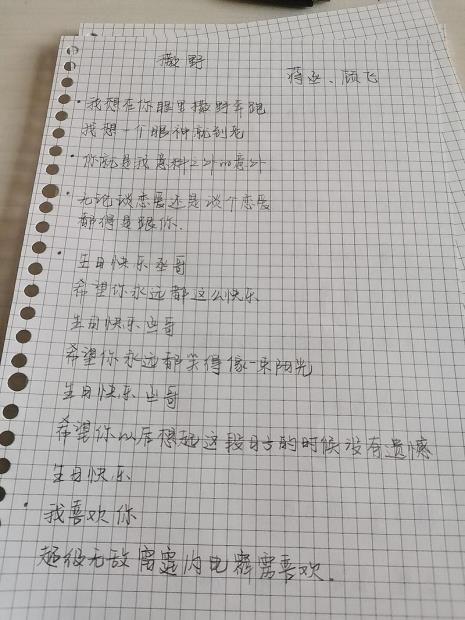 撒野
蒋丞、顾飞
·我想在你眼里撒野奔跑
我想一个眼神就到老
·你就是我意料之外的意外
·无论谈恋爱还是谈个恋爱
都得是跟你.
·生日快乐丞哥
希望你永远都这么快乐
生日快乐丞哥
希望你永远都笑得像一束阳光
生日快乐丞哥
希望你以后想起这段日子的时候没有遗憾
生日快乐
·我喜欢你
超级无敌雷霆闪电霹雳喜欢.